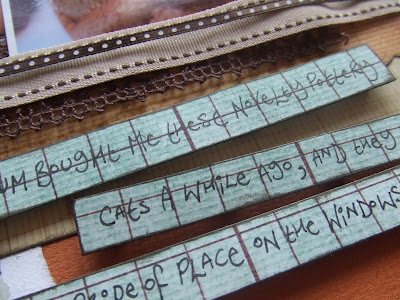 UM BOUGHT ME these NOVELTY POTTERY
CATS A WHILE AGO, AND they
RIDE OF PLACE ON the WINDOWS